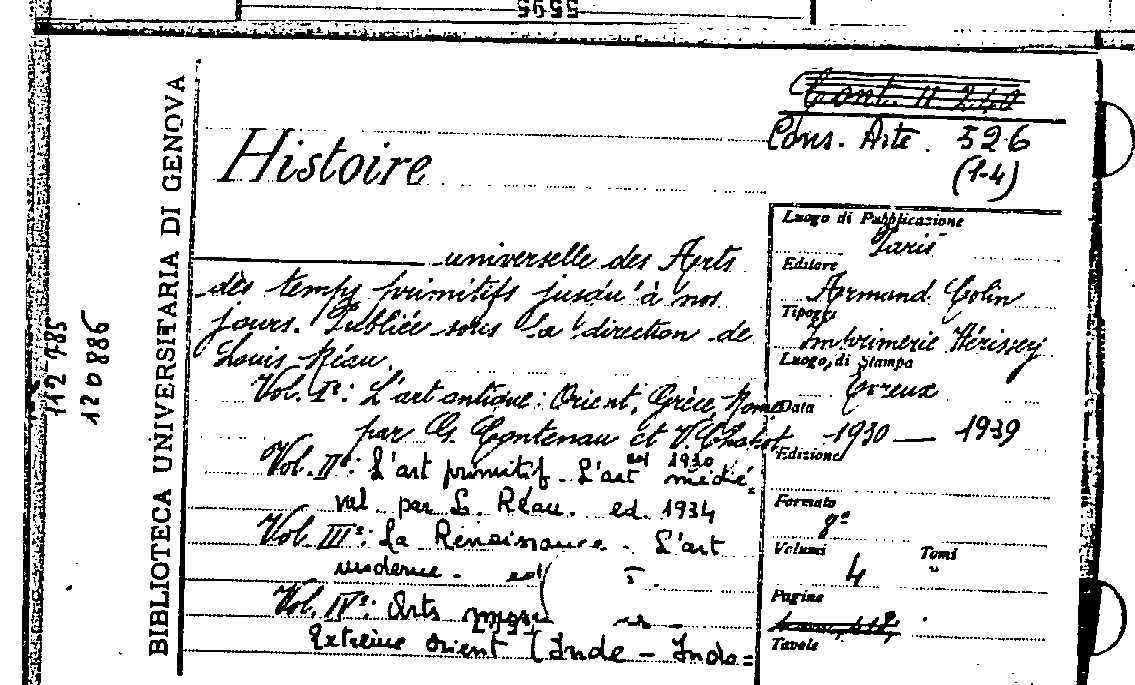 5595
Cont. II 240
Cons. Arte. 326
(1-4)
Histoire
universelle des Arts
dès temps primitifs jusqu'à nos
jours. Publiée sous la direction de
Louis Réau.
Vol. Iº: L'art antique: Orient, Grèce, Rome
par G. Contenau et V. Chabot
ed 1930
Vol. IIº: L'art primitif. L'art médié=
val. par L. Réau. ed. 1934
Vol. IIIº: La Renaissance. L'art
moderne.
Vol. IVº: Arts
Extrême Orient (Inde - Indo=
Luogo di Pubblicazione
Paris
Editore
Armand Colin
Tipogr.
Imprimerie Hérissey
Luogo di Stampa
Evreux
Data
1930 — 1939
Edizione
Formato
8º
Volumi
4
Tomi
"
Pagine
Tavole
BIBLIOTECA UNIVERSITARIA DI GENOVA
112 785
120886